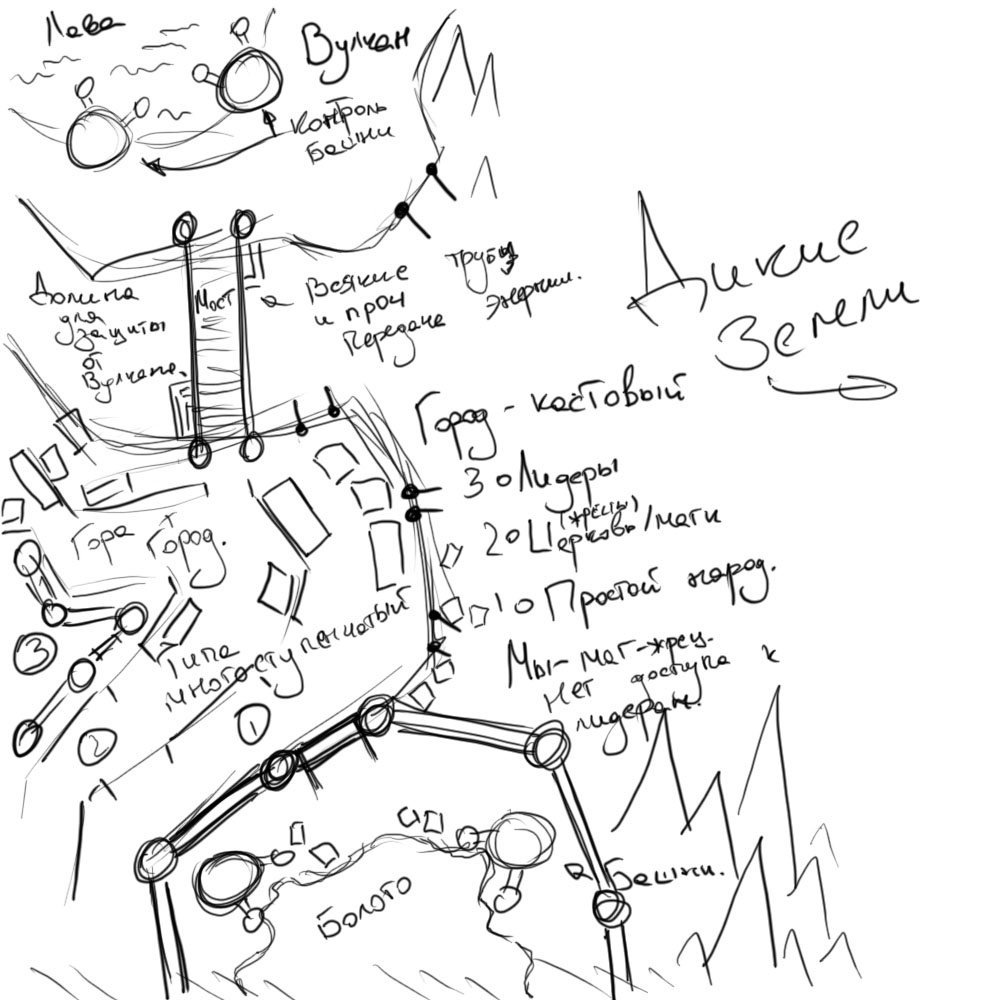 Лава
Вулкан
Контроль
Башни
Долина
для
защиты
от
Вулкана.
Мост
Всякие
и проч
Передача
трубы
энергии.
Дикие
Земели
Город - кастовый
3 о Лидеры
(жрецы)
2 о Церковь/маги
1 о Простой народ.
Мы - маг-жрец.
Нет доступа к
лидерам.
Гора
Город.
Типа
многоступенчатый
3
2
1
Башни.
Болото